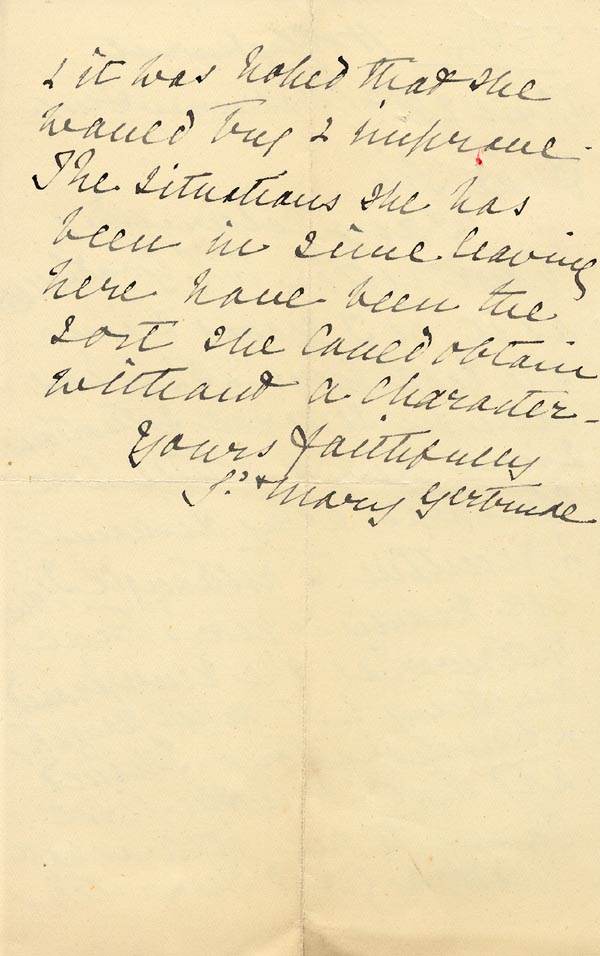 & it was hoped that she
would try & improve.
The situations she has
been in since leaving
here have been the
sort she could obtain
without a character -
Yours faithfully
Sr. + Mary Gertrude